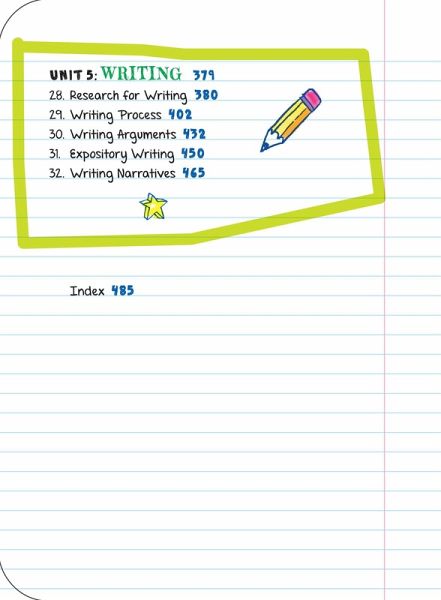 UNIT 5: WRITING 379
28. Research for Writing 380
29. Writing Process 402
30. Writing Arguments 432
31. Expository Writing 450
32. Writing Narratives 465
Index 485